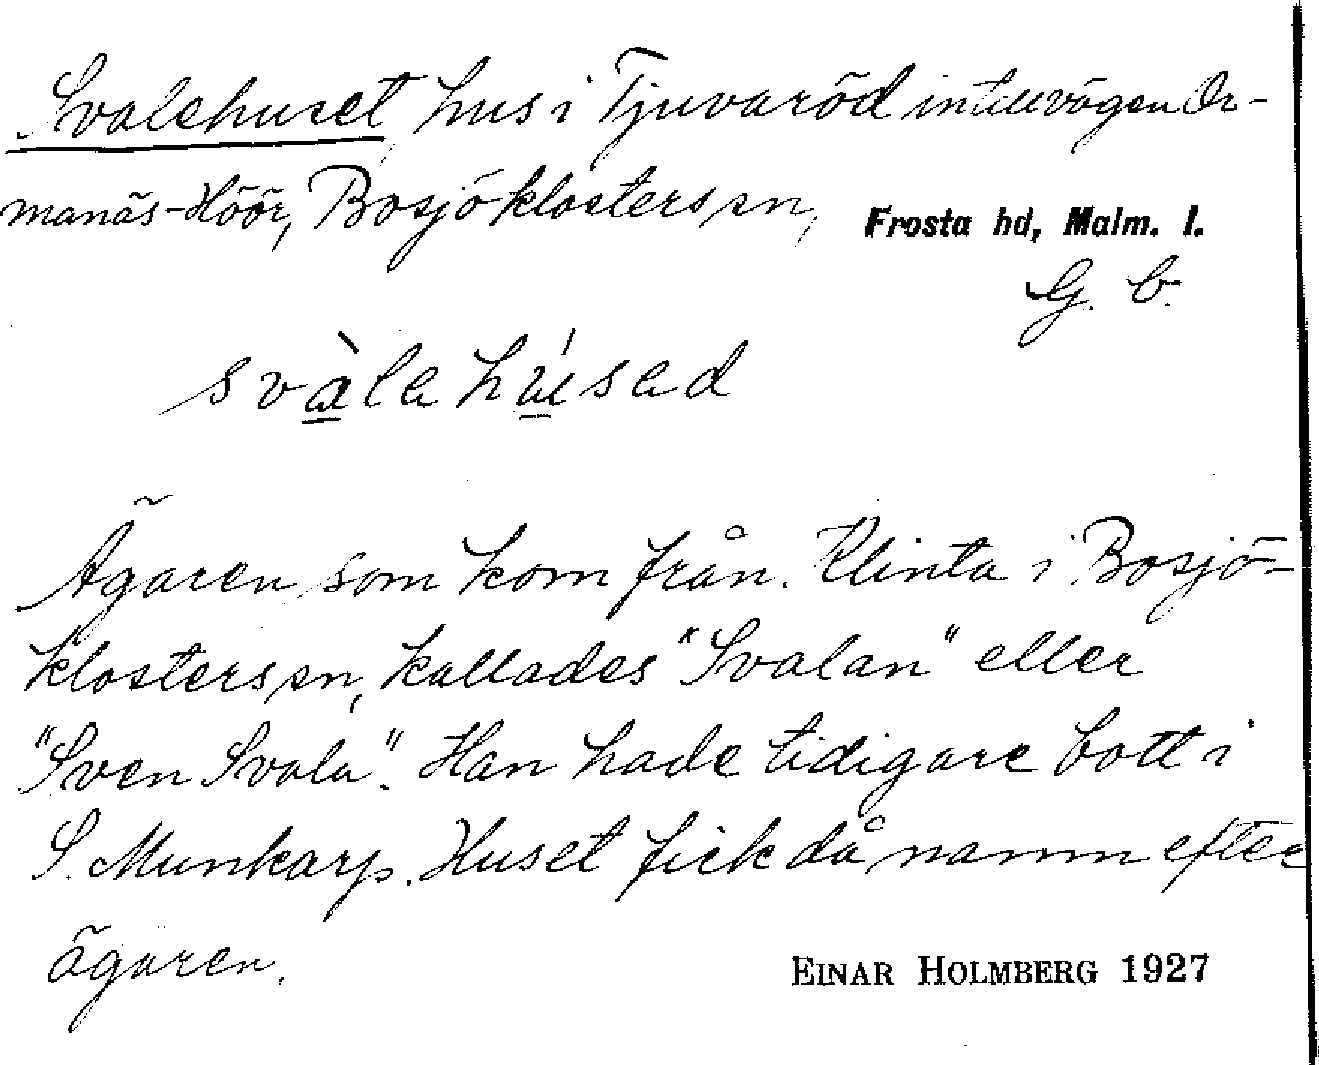 Svalehuset hus i Tjuvaröd intill vägen Or-
manäs-Höör, Bosjöklosters sn, Frosta hd, Malm. l.
G. b.
svàlehúsed
Ägaren som kom från Klinta i Bosjö-
klosters sn, kallades "Svalan" eller
"Sven Svala". Han hade tidigare bott i
S. Munkarp. Huset fick då namn efter
ägaren.
EINAR HOLMBERG 1927